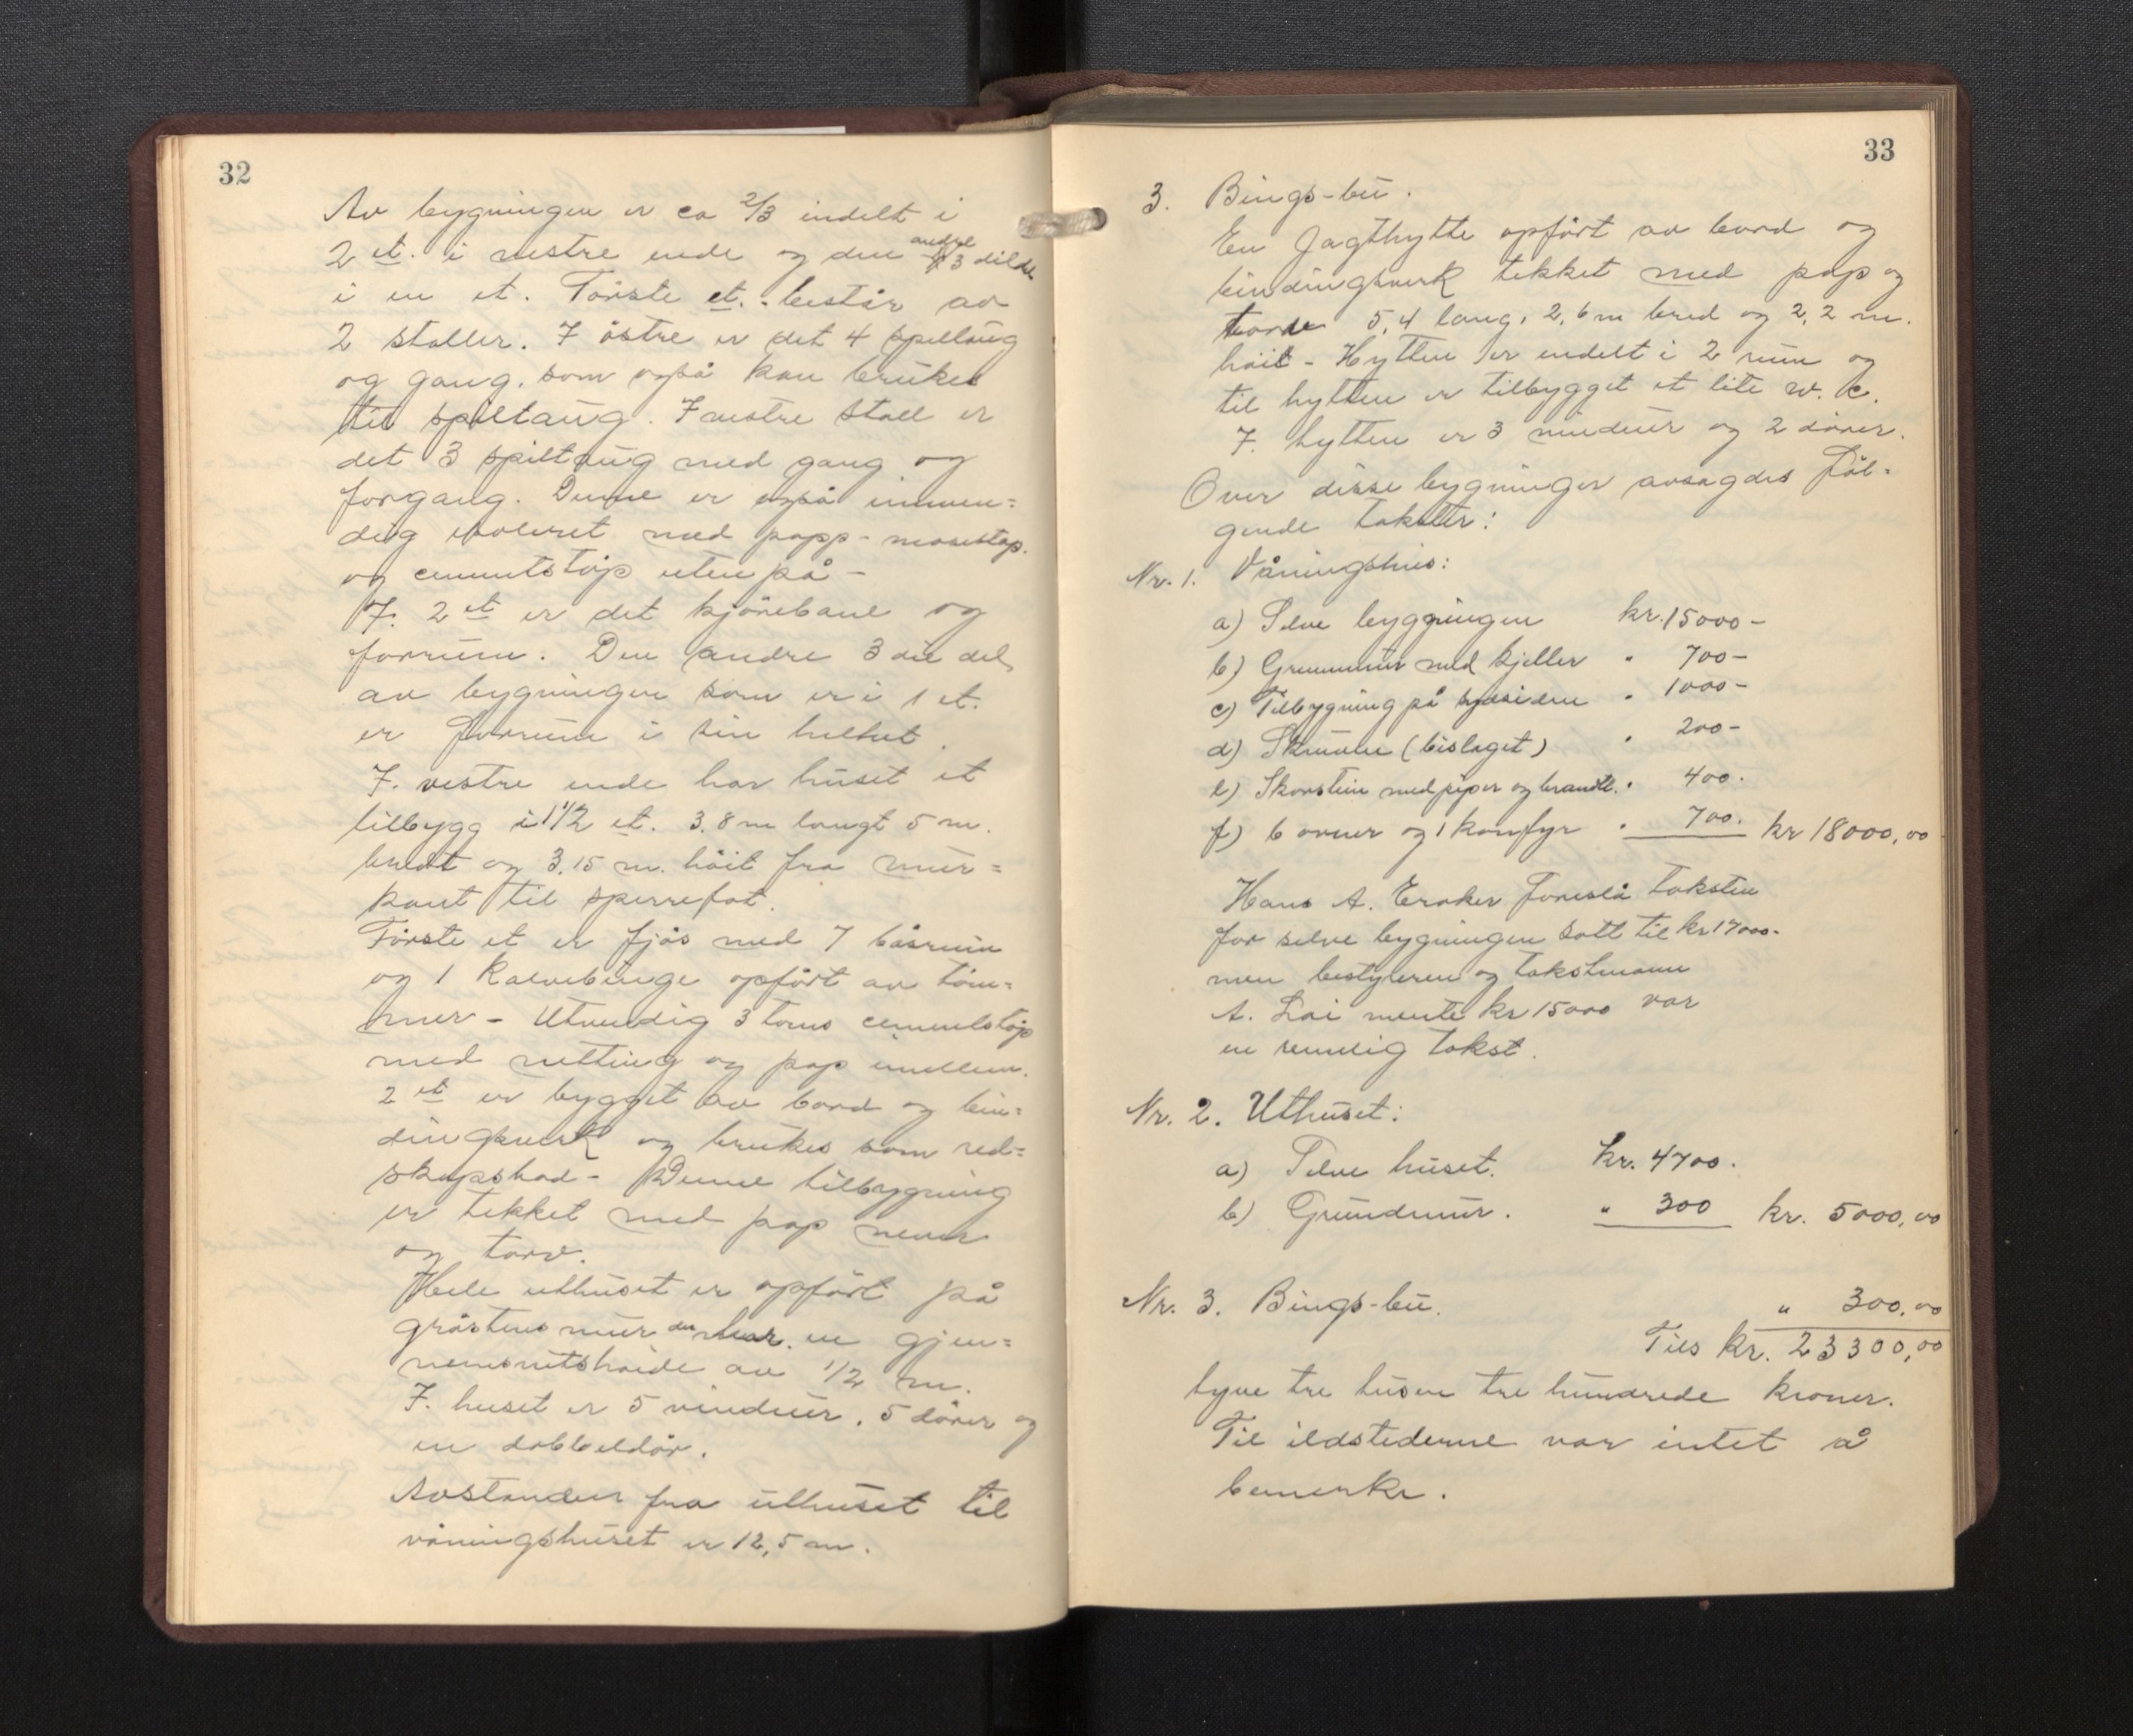 32
Av bygningen er ca 2/3 indelt i
2 et. i vestre ende og den andre 1/3 dilde
i en et. Förste et. består av
2 staller. I östre er det 4 spiltaug
og gang. som også kan brukes
til spiltaug. I vestre stall er
det 3 spiltaug med gang og
forgang. Denne er også innven=
dig isoleret med papp - mosestap.
og cementstöp utenpå -
I. 2 et er det kjörebane og
forrum. Den andre 3die del
av bygningen som er i 1 et.
er forrum i sin helhet.
I. vestre ende har huset et
tilbygg i 1 1/2 et. 3.8 m langt 5 m.
bredt og 3.15 m. höit fra mur=
kant til sperrefot.
Förste et er fjös med 7 båsrum
og 1 Kalvebinge opfört av töm=
mer - Utvendig 3 toms cementstöp
med netting og pap imellem.
2 et er bygget av bord og bin=
dingsverk og brukes som red=
skapsbod - Denne tilbygning
er tekket med pap never
og torv.
Hele uthuset er opfört på
gråstensmur der har en gjen=
nemsnitshöide av 1/2 m.
I. huset er 5 vinduer. 5 dörer og
en dobbeldör.
Avstanden fra uthuset til
våningshuset er 12,5 m.
33
3. Bings-bu.
En Jagthytte opfört av bord og
bindingsverk tekket med pap og
5,4 lang, 2,6 m bred og 2,2 m.
höit - Hytten er indelt i 2 rum og
til hytten er tilbygget et lite w. c.
I. hytten er 3 vinduer og 2 dörer.
Over disse bygninger avsagdes föl=
gende takster:
Nr. 1. Våningshus:
a) Selve byggningen kr. 15000 -
b) Grunnmur med kjeller " 700 -
c) Tilbygning på sydsiden " 1000 -
d) Skruvle (bislaget) " 200 -
e) Skorstein med piper og brandt. " 400.
f) 6 ovner og 1 komfyr " 700. kr 18000,00
Hans A. Eraker foreslå taksten
for selve bygningen satt til kr 17000.
men bestyreren og takstmann
A. Loi mente kr 15000 var
en rimelig takst.
Nr. 2. Uthuset:
a) Selve huset. kr. 4700.
b) Grundmur. " 300 kr. 5000,00
Nr. 3. Bings-bu. " 300,00
Tils kr. 23300,00
tyve tre tusen tre hundrede kroner.
Til ildstederne var intet å
bemerke.